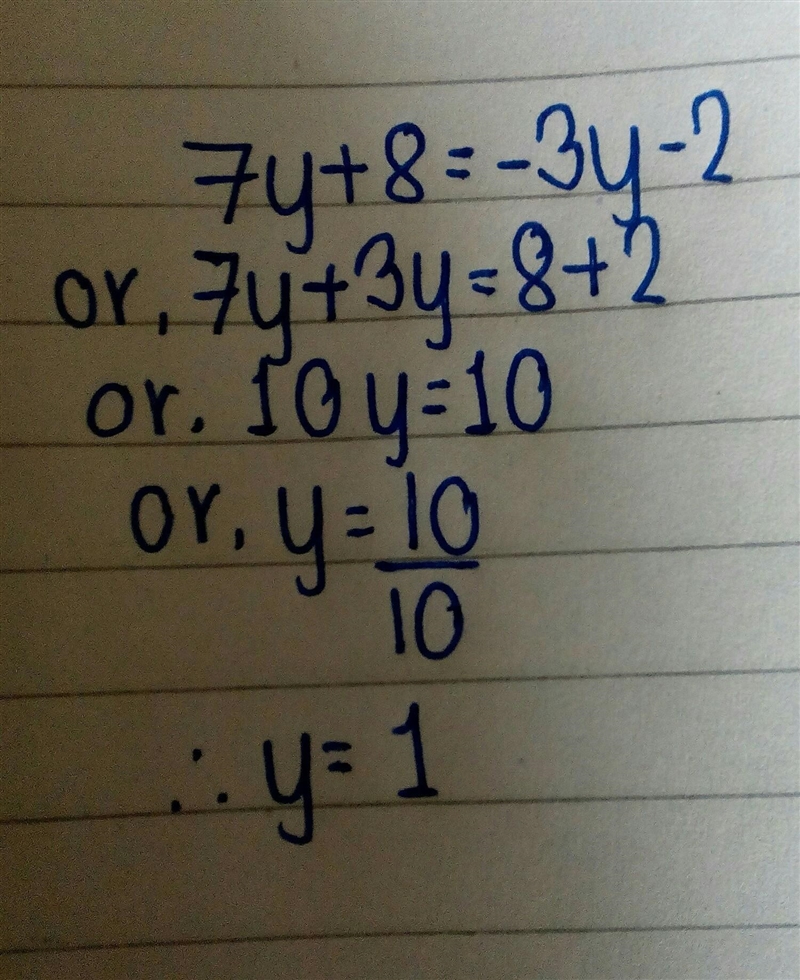 7y+8=-3y-2
or, 7y+3y=8+2
or. 10y=10
or, y=10/10
∴ y=1